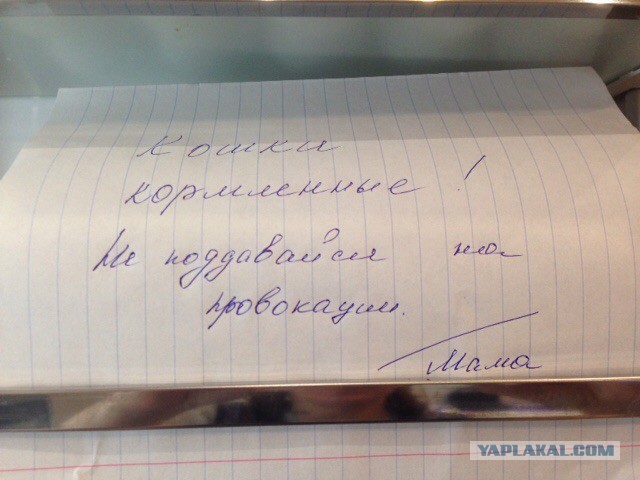 Кошки
кормленные!
Не поддавайся на
провокации.
Мама
YAPLAKAL.COM